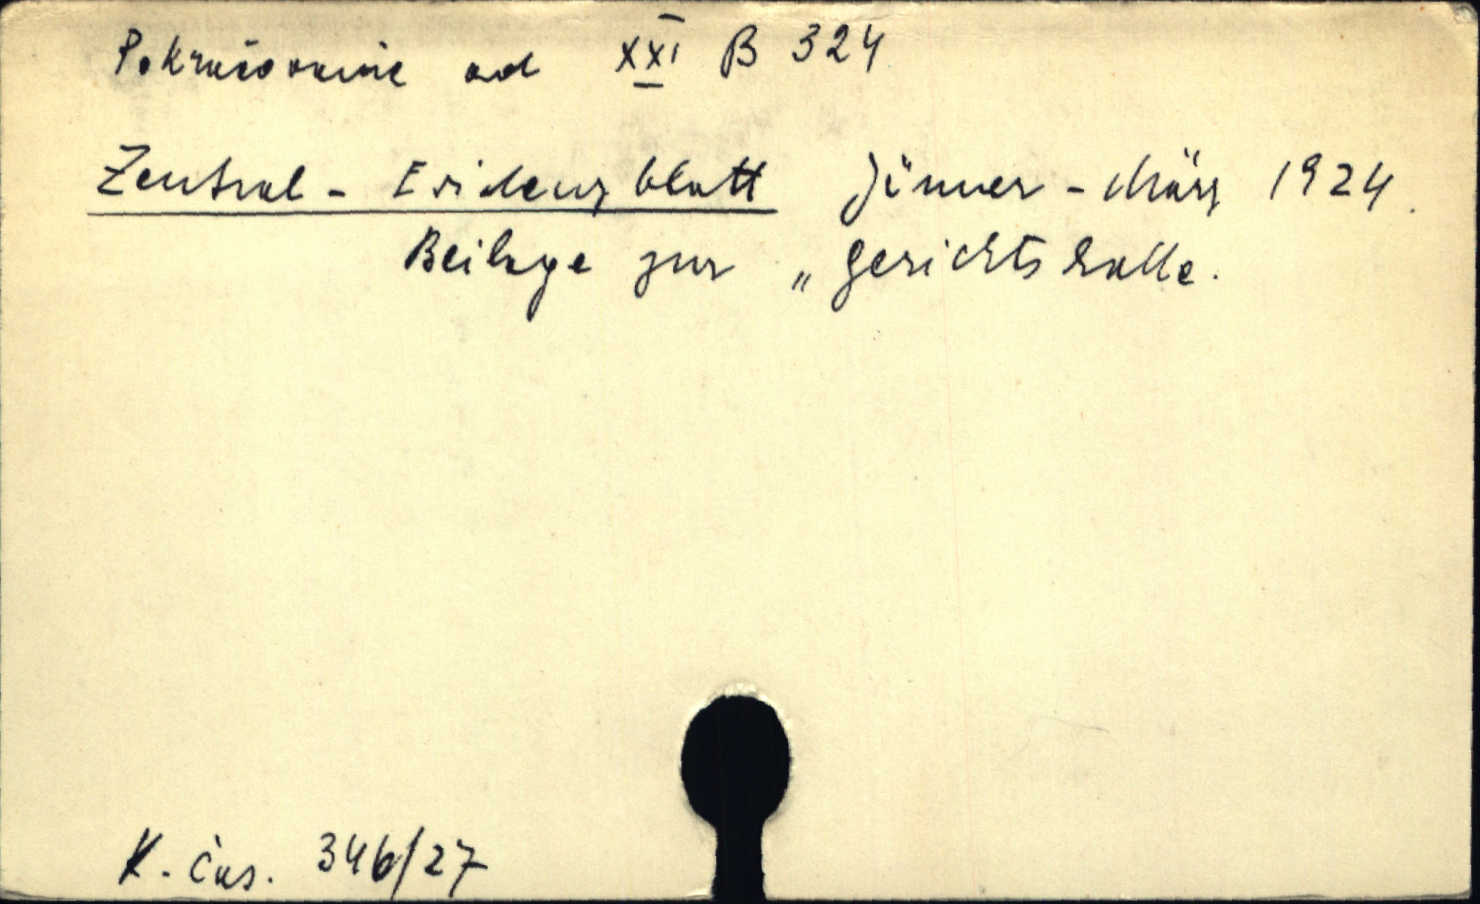 Pokračovanie od XXI B 324
Zentral - Evidenzblatt Jänner - März 1924.
Beilage zur „Gerichtshalle.
K. čas. 346/27